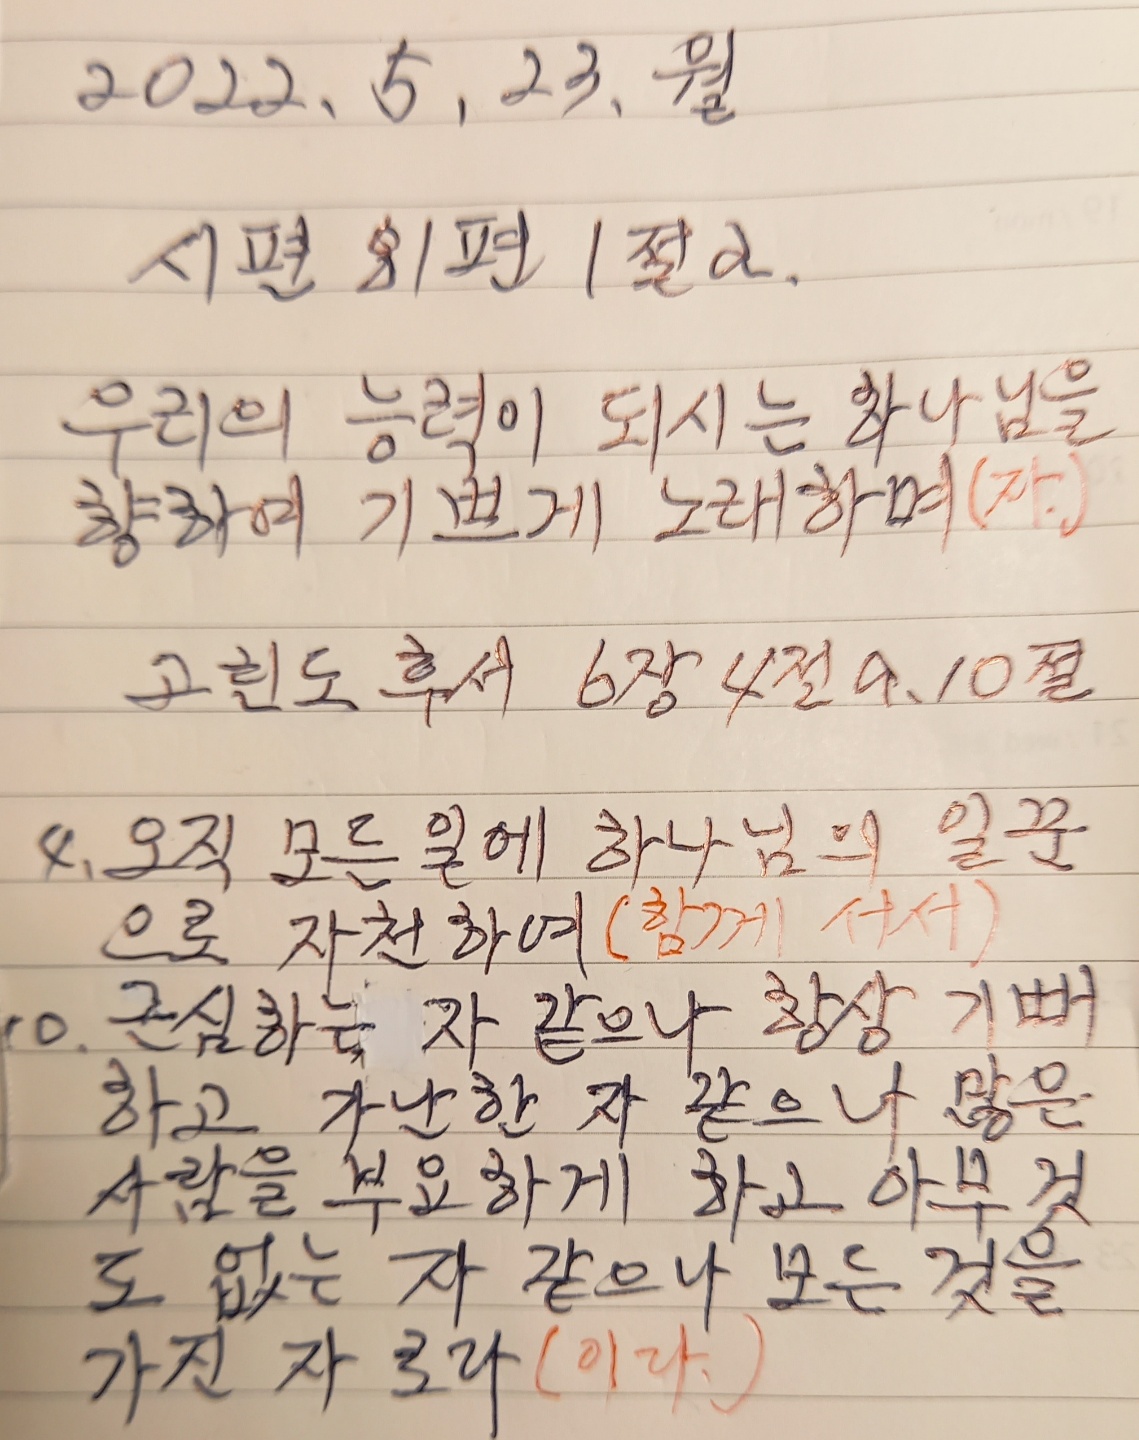 2022. 5, 23. 월
시편 81편 1절a.
우리의 능력이 되시는 하나님을
향하여 기쁘게 노래하며(자.)
고린도 후서 6장 4절a. 10절
4. 오직 모든 일에 하나님의 일꾼
으로 자천하여(함께 서서)
10. 근심하는 자 같으나 항상 기뻐
하고 가난한 자 같으나 많은
사람을 부요하게 하고 아무 것
도 없는 자 같으나 모든 것을
가진 자로라(이라.)